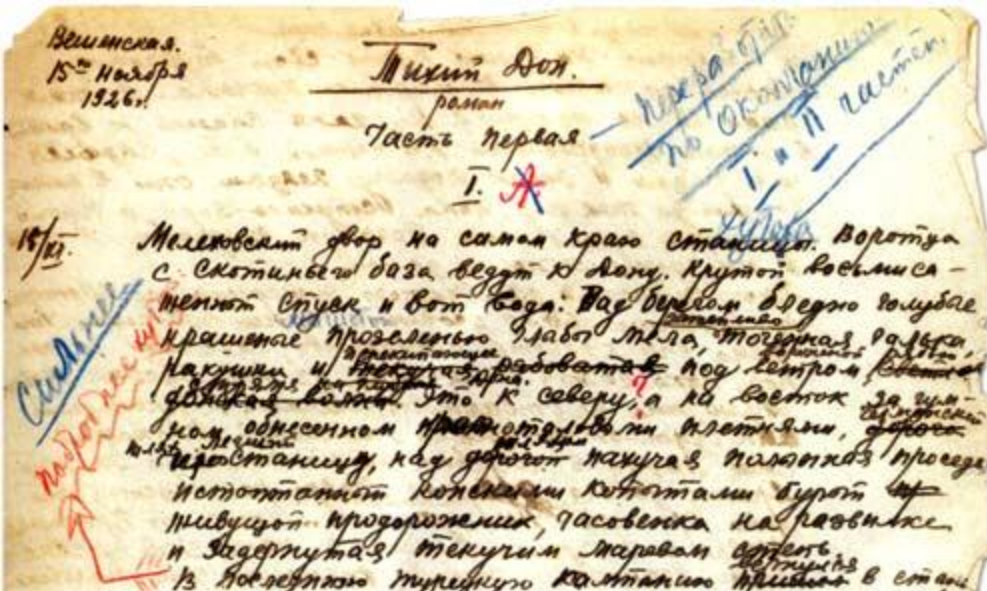 Вешенская.
15го ноября
1926г.
Тихий Дон.
роман
Часть первая
I. А
— Переработать
по окончанию
I и II частей.
хутора
15/XI.
Мелеховский двор на самом краю станицы. Воротца
с скотиньего база ведут к Дону. Крутой восьмиса-
женный спуск и вот вода: Над берегом бледно голубые
крашеные прозеленью глабы мела,
ракушки и текучая рябоватая под ветром
донская волна. Это к северу, ? а на восток за гум-
ном обнесенном плетнями,
станицу, над дорогой пахучая полынная проседь
истоптанный конскими копытами бурый
живущой придорожник, часовенка на развилке
и задернутая текучим маревом степь.
В последнюю турецкую кампанию вернулся в стани
Сильнее
подробнее